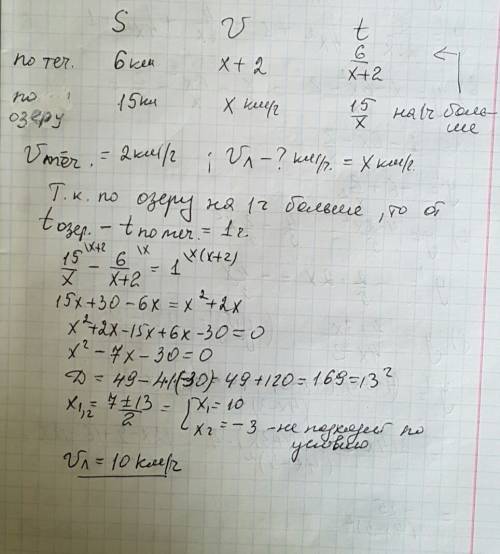 S   V   t
по теч.   6 км   x + 2   6/(x+2)
по озеру   15 км   x км/ч   15/x   на 1ч больше
Vтеч. = 2 км/ч ; Vл - ? км/ч. = x км/ч.
Т.к. по озеру на 1ч больше, то от
t озер. - t по теч. = 1 ч.
15/x \x+2 - 6/(x+2) \x = 1 \x(x+2)
15x + 30 - 6x = x² + 2x
x² + 2x - 15x + 6x - 30 = 0
x² - 7x - 30 = 0
D = 49 - 4·1(-30) = 49 + 120 = 169 = 13²
x1,2 = (7 ± 13)/2 = { x1 = 10
x2 = -3 - не подходит по
условию
Vл = 10 км/ч